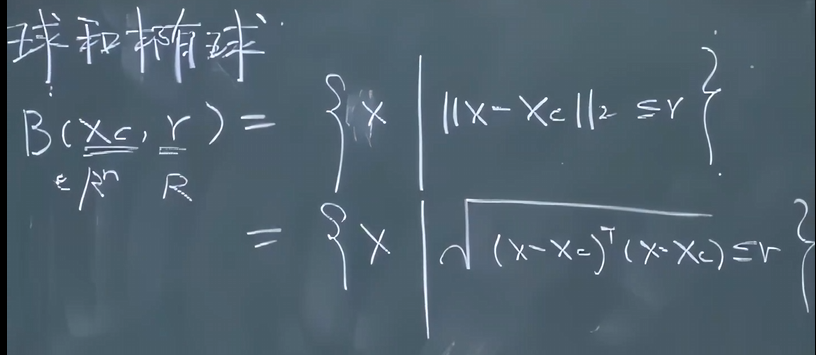 球和椭球
B(Xc, r) = { X | ||X - Xc||₂ ≤ r }
∈ Rⁿ R
= { X | √(X - Xc)ᵀ(X - Xc) ≤ r }